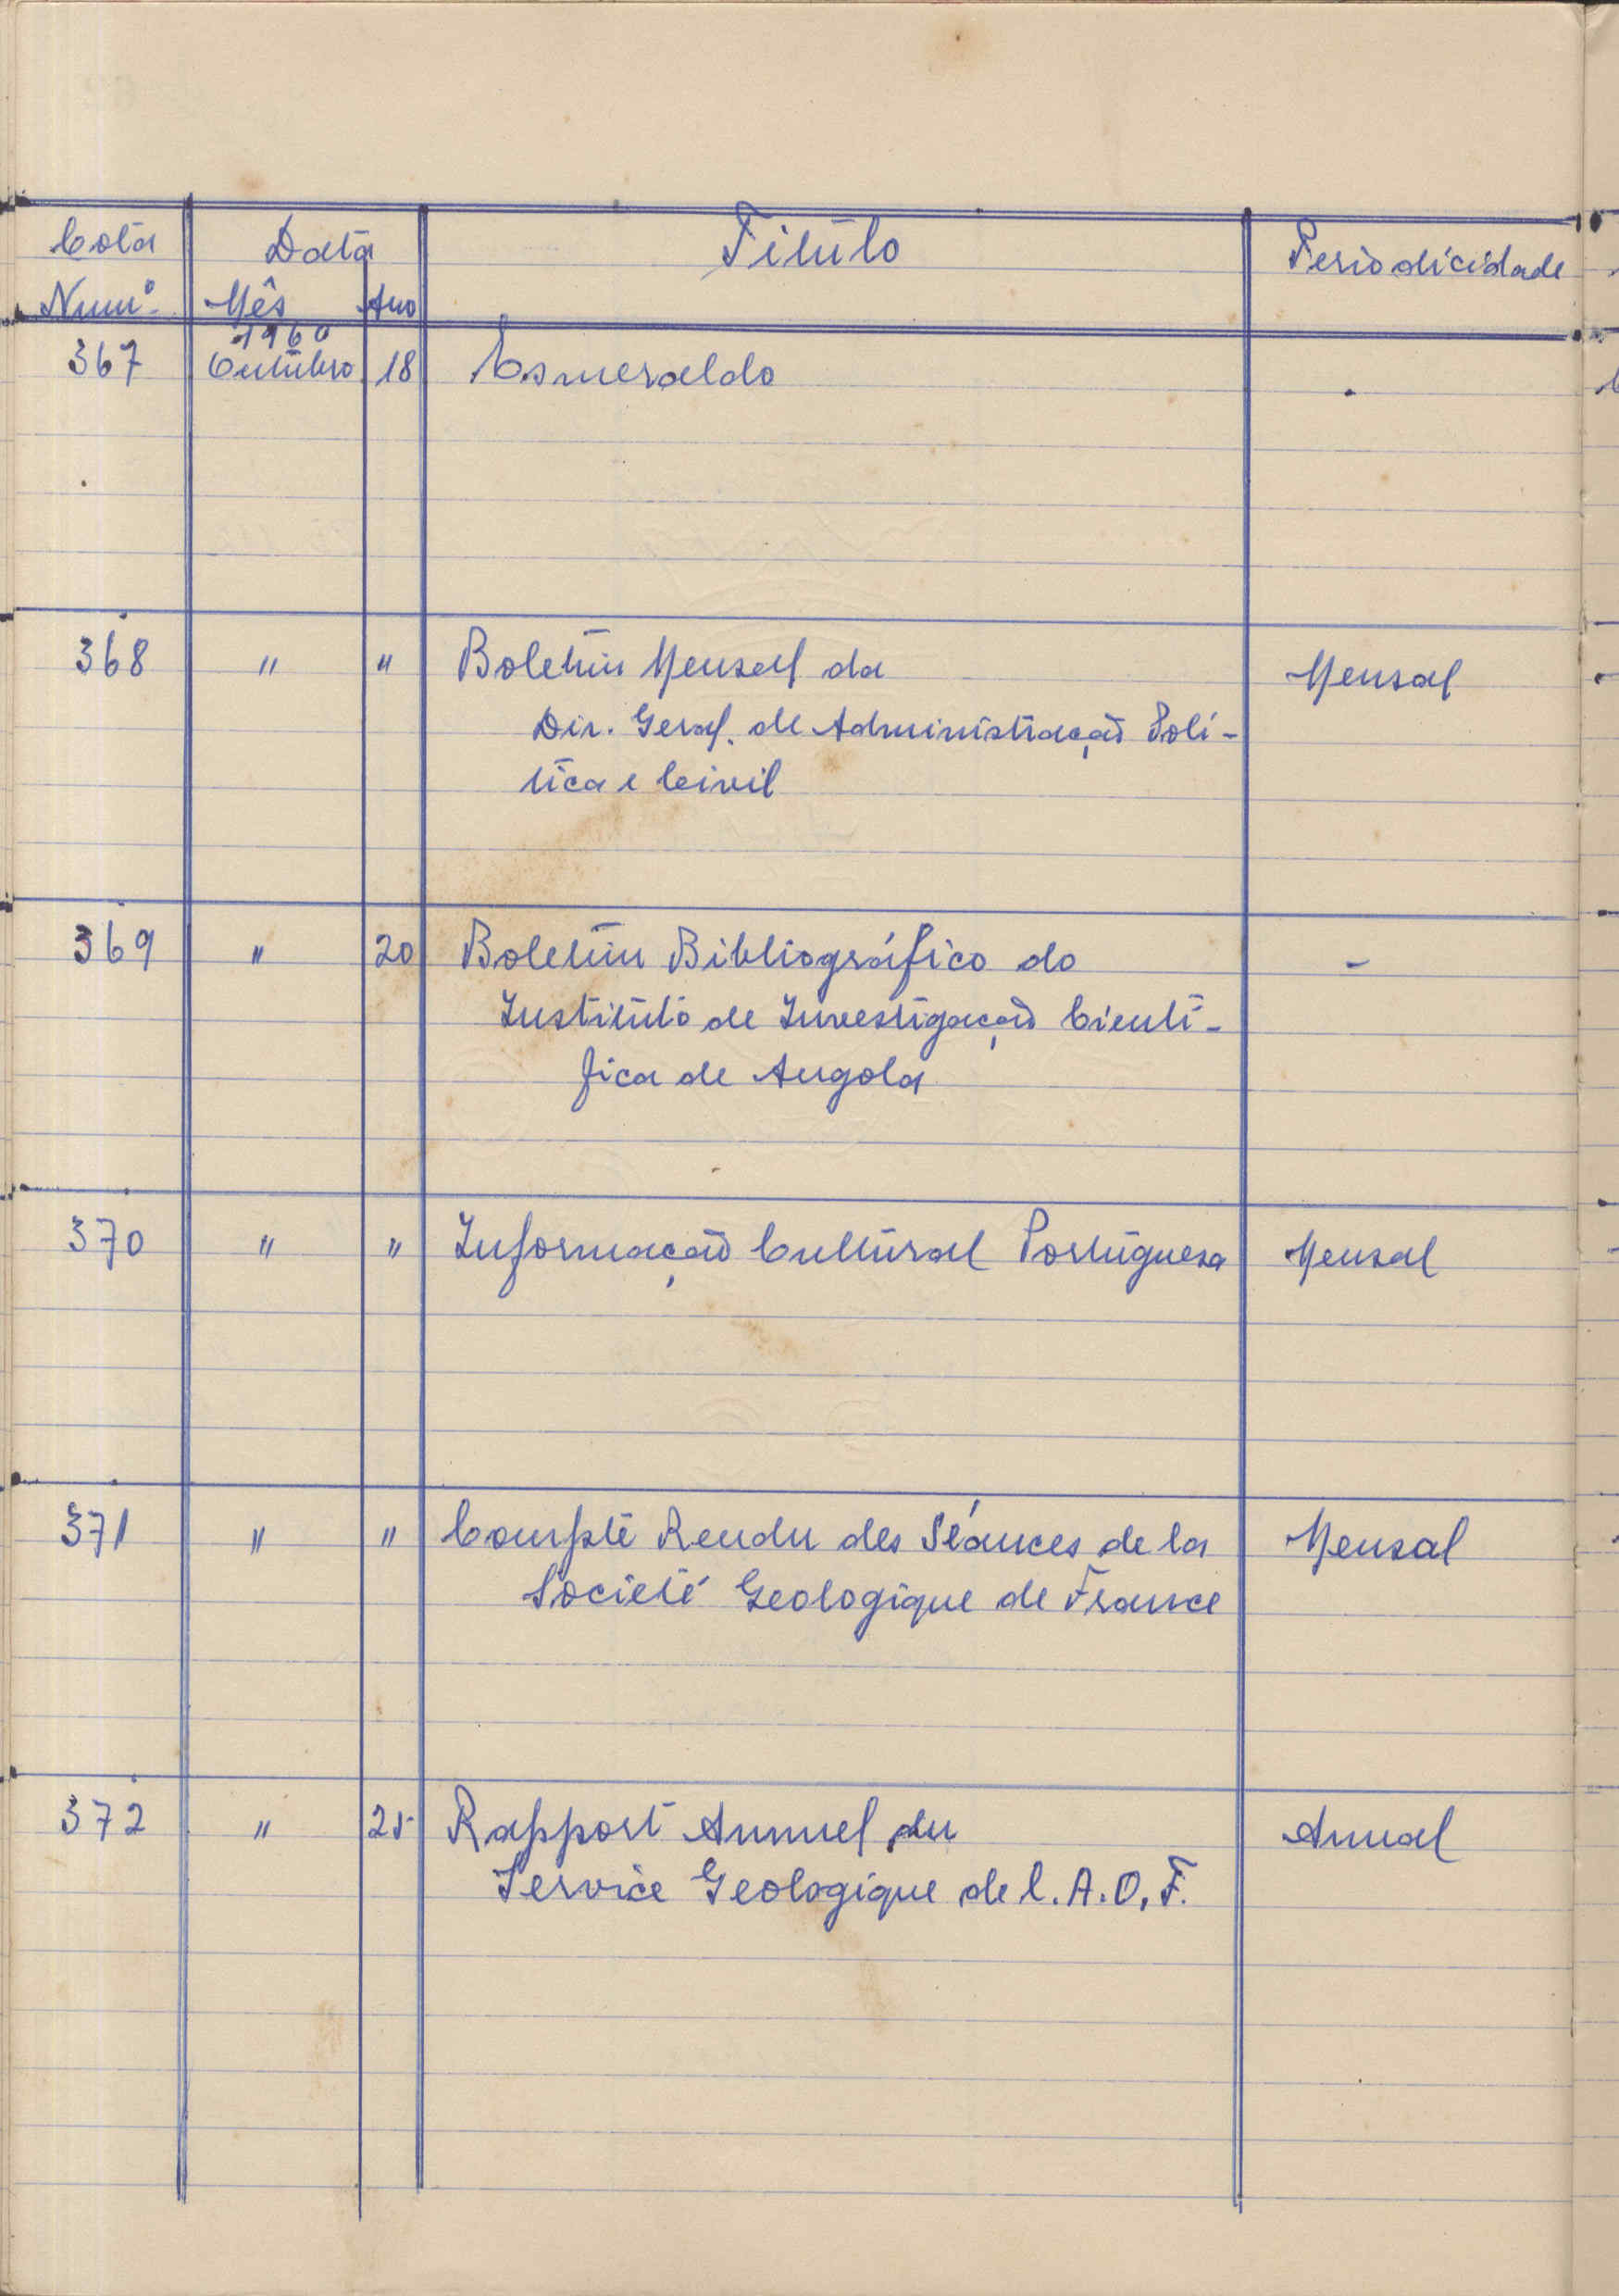 Cota Data Titulo Periodicidade
Numº Mês Ano
1960
367 Outubro 18 Esmeraldo
368 " " Boletim Mensal da Mensal
Dir. Geral. de Administração Polí-
tica e Civil
369 " 20 Boletim Bibliográfico do -
Instituto de Investigação Cientí-
fica de Angola
370 " " Informação Cultural Portuguesa Mensal
371 " " Compte Rendu des Séances de la Mensal
Societé Geologique de France
372 " 25 Rapport Annuel du Anual
Service Geologique de l. A. O. F.